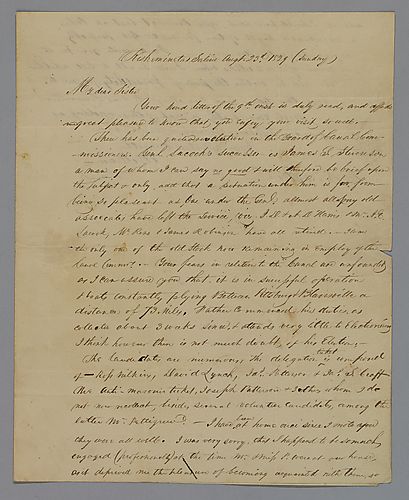 Kiskiminetas Salina Augt. 23d. 1829 (Sunday)
My dear Sister
Your kind letter of the 9th inst. is duly recd, and affords
great pleasure to know that, you enjoy your visit so well.
There has been quite a revolution in the Board of Canal Com-
missioners. Genl Lacock's successor is James S. Stevenson
a man of whom I can say no good & will therefore be brief upon
the subject & only add that a situation under him is far from
being so pleasant as was under the Genl; almost all of my old
associates have left the service,
Lacock, Mr Ross & James Robinson have all retired. I am
the only one of the old stock now remaining in employ of the
Canal Commrs. Your fears in relation to the Canal are unfounded
as I can assure you that it is in successful operation
Boats constantly plying between Pittsburgh &
distance of Miles, Father commenced his duties, as
collector about 3 weeks since & attends very little to Electioneering
I think however there is not much doubt of his Election,
The Candidates are numerous, the delegation ticket is composed
of Ross Wilkins, David Lynch, Jas. Patterson &
the anti-masonic ticket, Joseph Patterson & others whom I do
not now recollect, besides several volunteer candidates, among the
latter Mr. Pettigrew. I have been at home once since I wrote you
they were all well. I was very sorry that I happened to be so much
engaged (professionally) at the time Mr. & Miss P. were at our house,
as it deprived me the pleasure of becoming acquainted with them, so